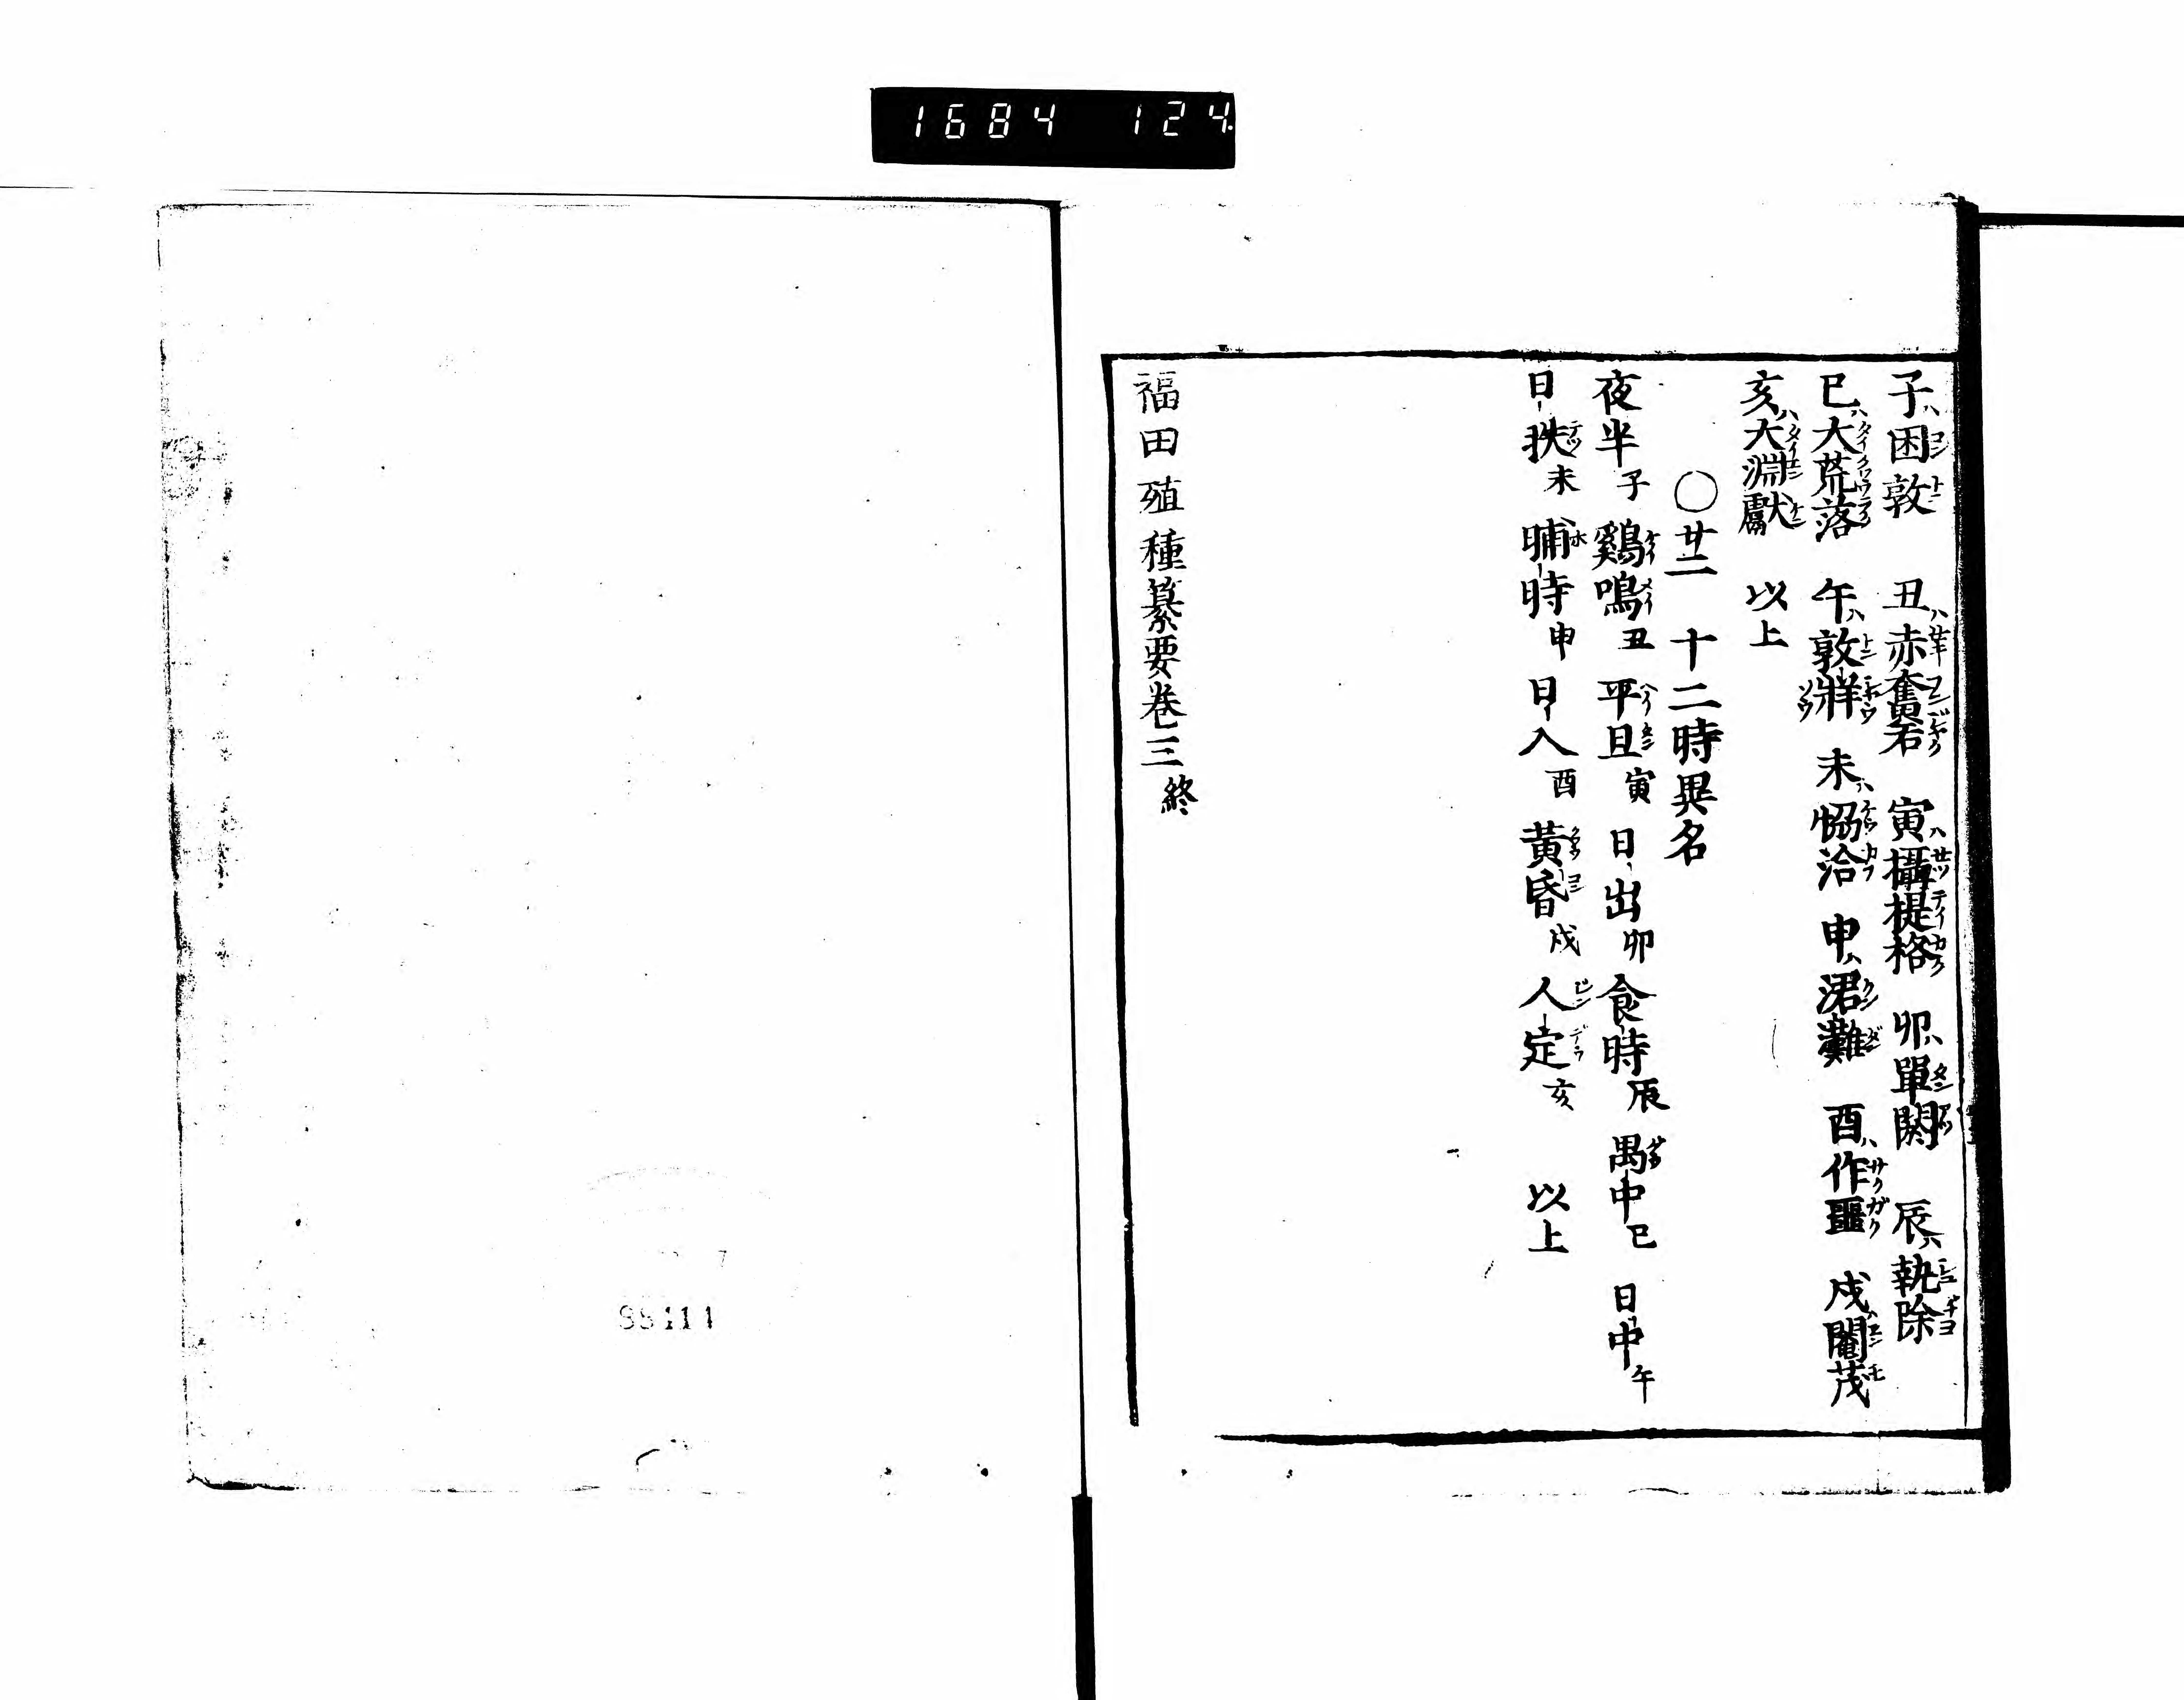 1684 124
子ハ困敦 丑ハ赤奮若 寅ハ攝提格 卯ハ單閼 辰ハ執除
巳ハ大荒落 午ハ敦牂 未ハ協洽 申ハ涒灘 酉ハ作噩 戌ハ閹茂
亥ハ大淵獻 以上
〇廿二 十二時異名
夜半子 鷄鳴丑 平旦寅 日出卯 食時辰 禺中巳 日中午
日昳未 晡時申 日入酉 黃昏戌 人定亥 以上
福田殖種纂要卷三終
88111